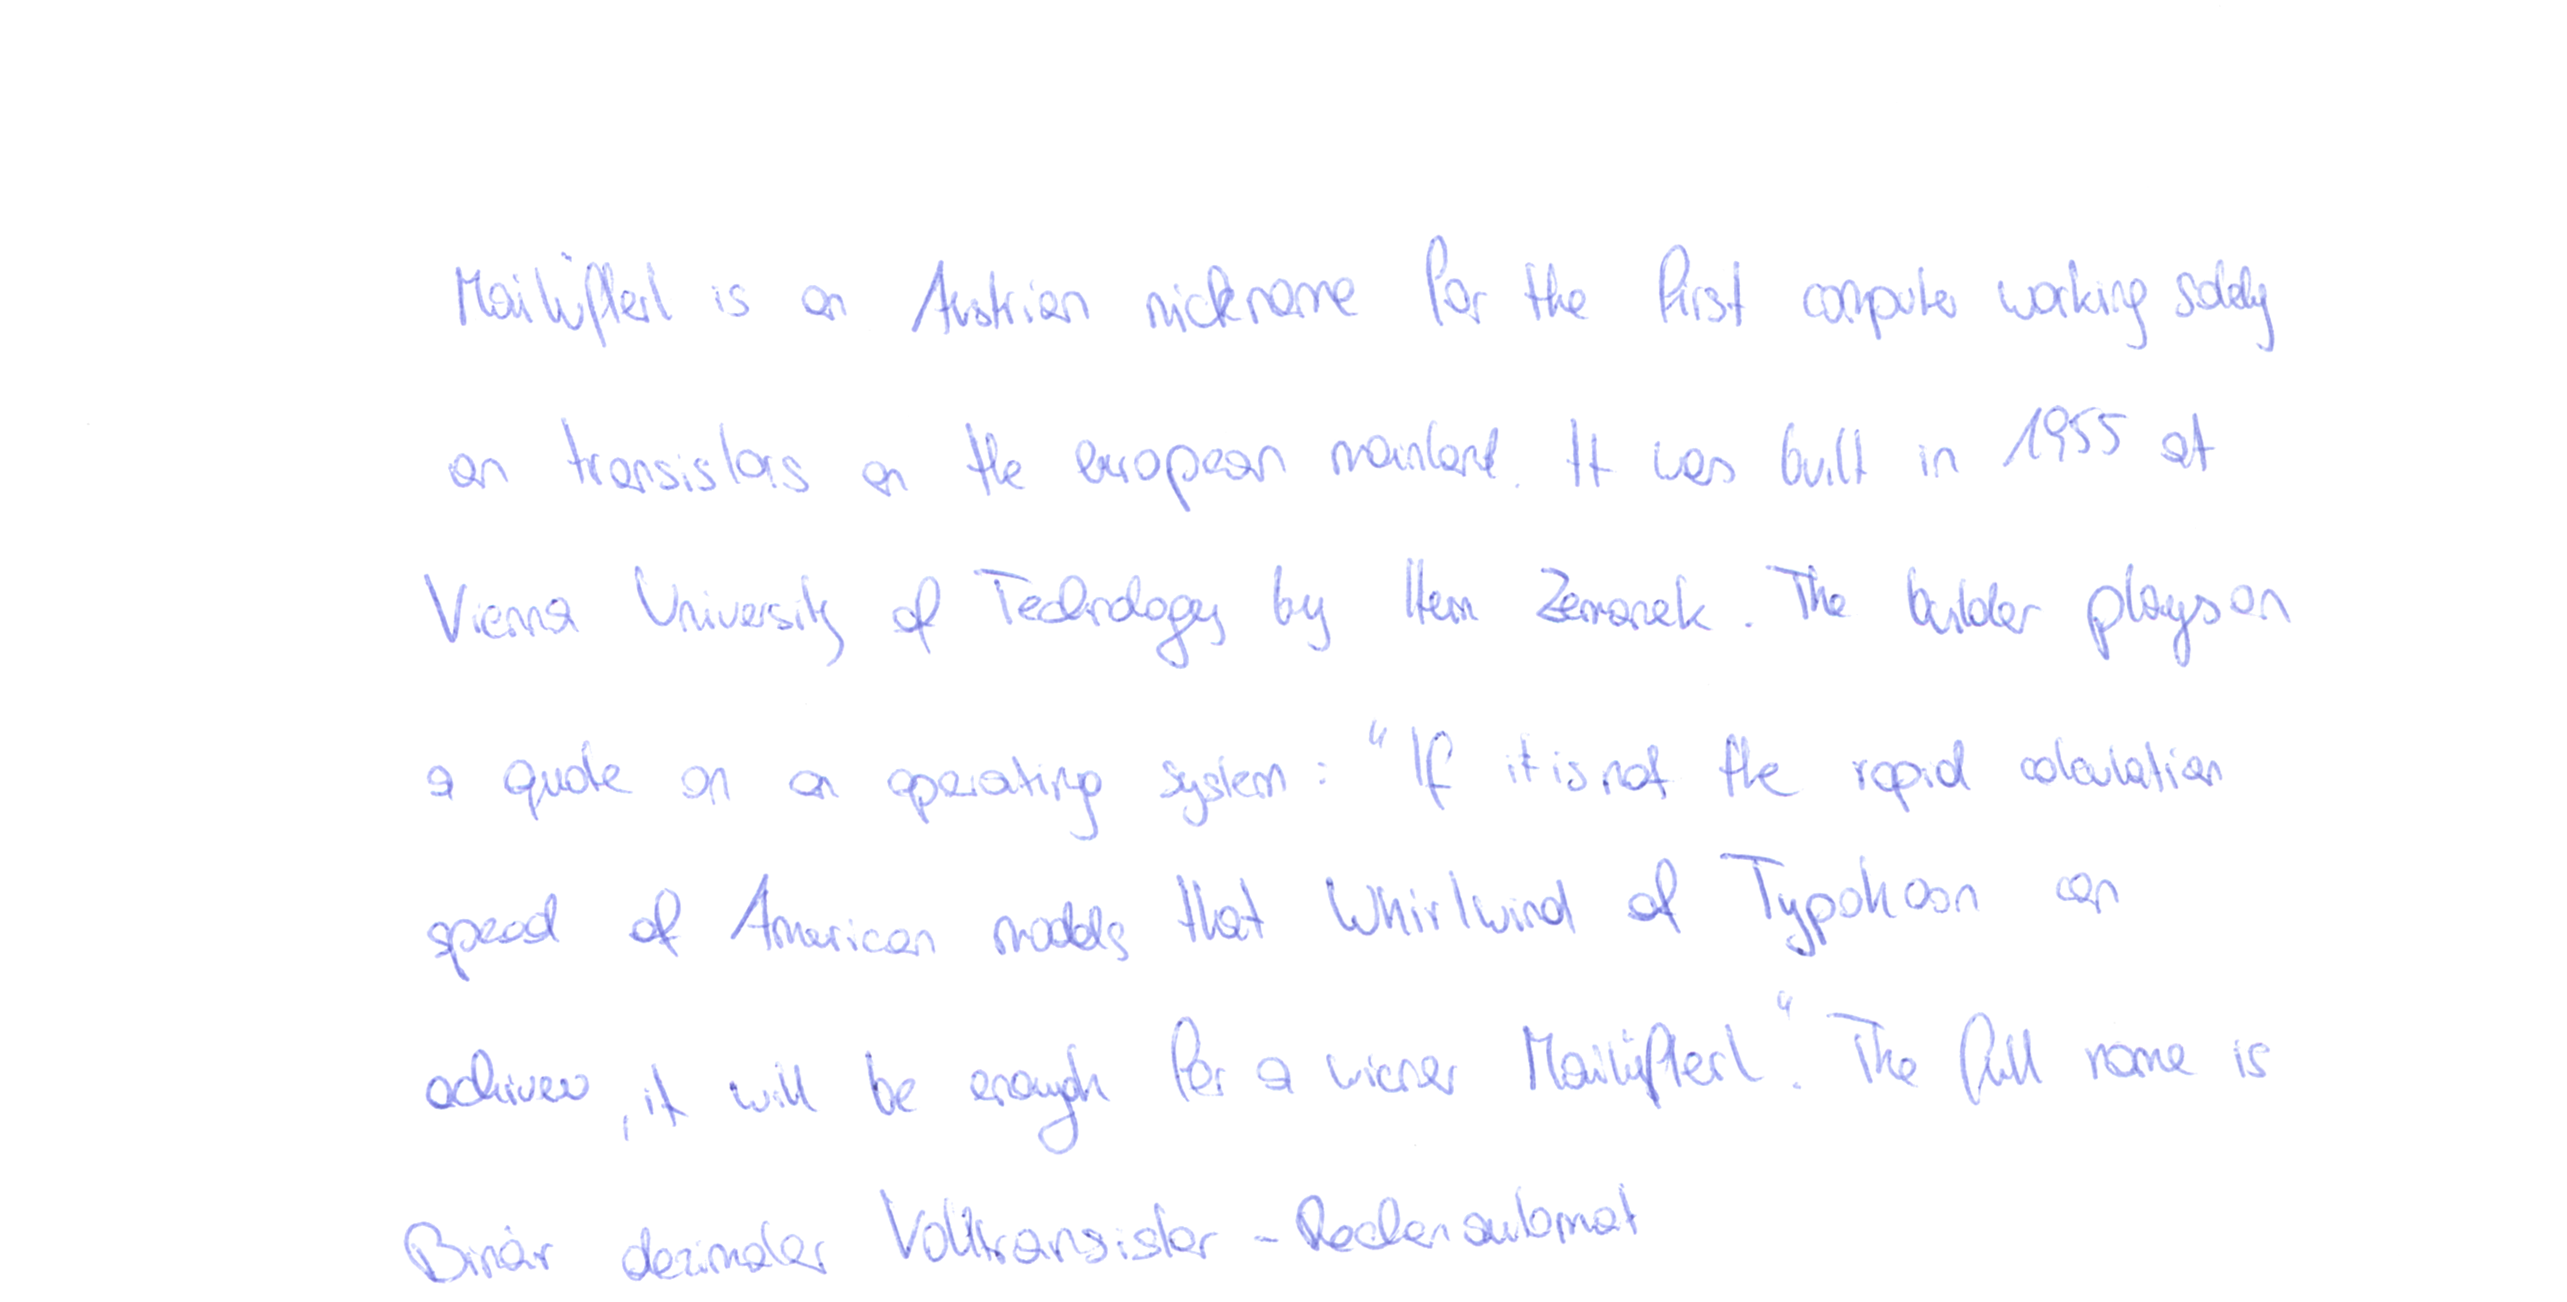 Mailüfterl is an Austrian nickname for the first computer working solely
on transistors on the european mainland. It was built in 1955 at
Vienna University of Technology by Hem Zemanek. The builder plays on
a quote on an operating system: "If it is not the rapid calculation
speed of American models that Whirlwind of Typohoon can
achivew, it will be enough for a wiener Mailüfterl". The full name is
Binär dezimaler Volltransistor-Rechenautomat